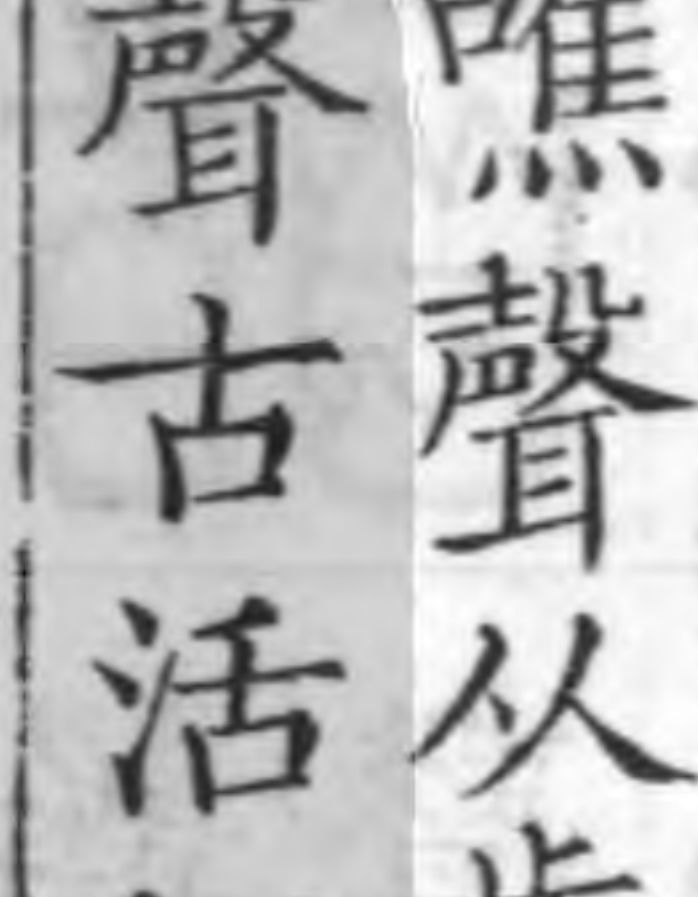 噍聲从
聲古活